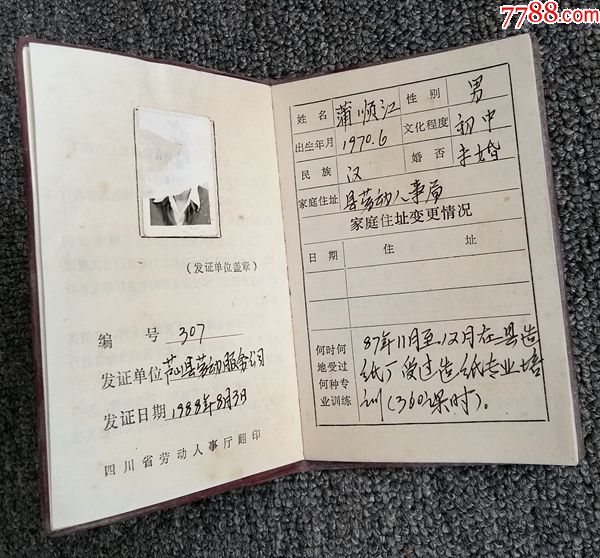 7788.com
中国收藏热线
(发证单位盖章)
编 号 307
发证单位 芦山县劳动服务公司
发证日期 1988年8月3日
四川省劳动人事厅翻印
姓名 蒲顺江 性别 男
出生年月 1970.6 文化程度 初中
民族 汉 婚否 未婚
家庭住址 县劳动人事局
家庭住址变更情况
日期 住 址
何时何地受过何种专业训练
87年11月至12月在县造
纸厂受过造纸专业培
训(360课时)。